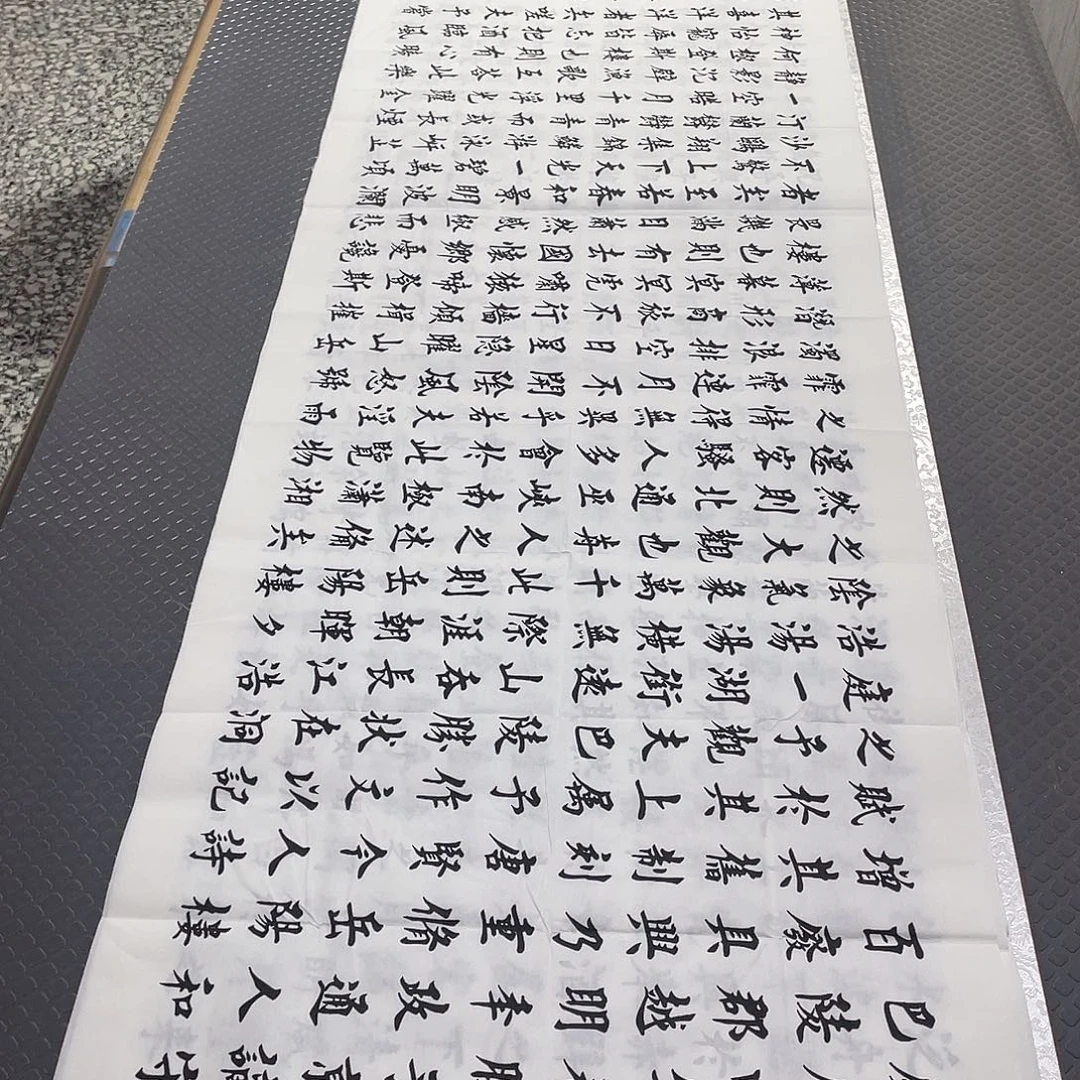 巴陵郡越明年政通人和
百廢具興乃重脩岳陽樓
增其舊制刻唐賢今人詩
賦於其上属予作文以記
之予觀夫巴陵勝狀在洞
庭一湖銜遠山吞長江浩
浩湯湯橫無際涯朝暉夕
陰氣象萬千此則岳陽樓
之大觀也前人之述備矣
然則北通巫峽南極瀟湘
遷客騷人多會於此覽物
之情得無異乎若夫淫雨
霏霏連月不開陰風怒號
濁浪排空日星隐曜山岳
潛形商旅不行檣傾楫摧
薄暮冥冥虎嘯猿啼登斯
樓也則有去國懷鄉憂讒
畏譏滿目蕭然感極而悲
者矣至若春和景明波瀾
不驚上下天光一碧萬頃
沙鷗翔集錦鱗游泳岸芷
汀蘭鬱鬱青青而或長煙
一空皓月千里浮光躍金
靜影沉璧漁歌互答此樂